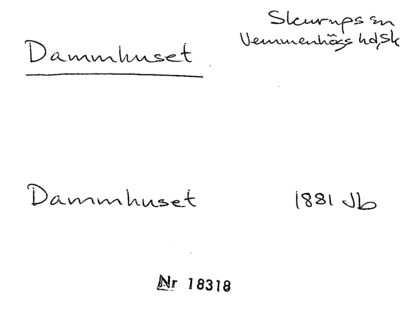 Skurups sn
Vemmenhögs hd, Sk
Dammhuset
Dammhuset 1881 Jb
Nr 18318